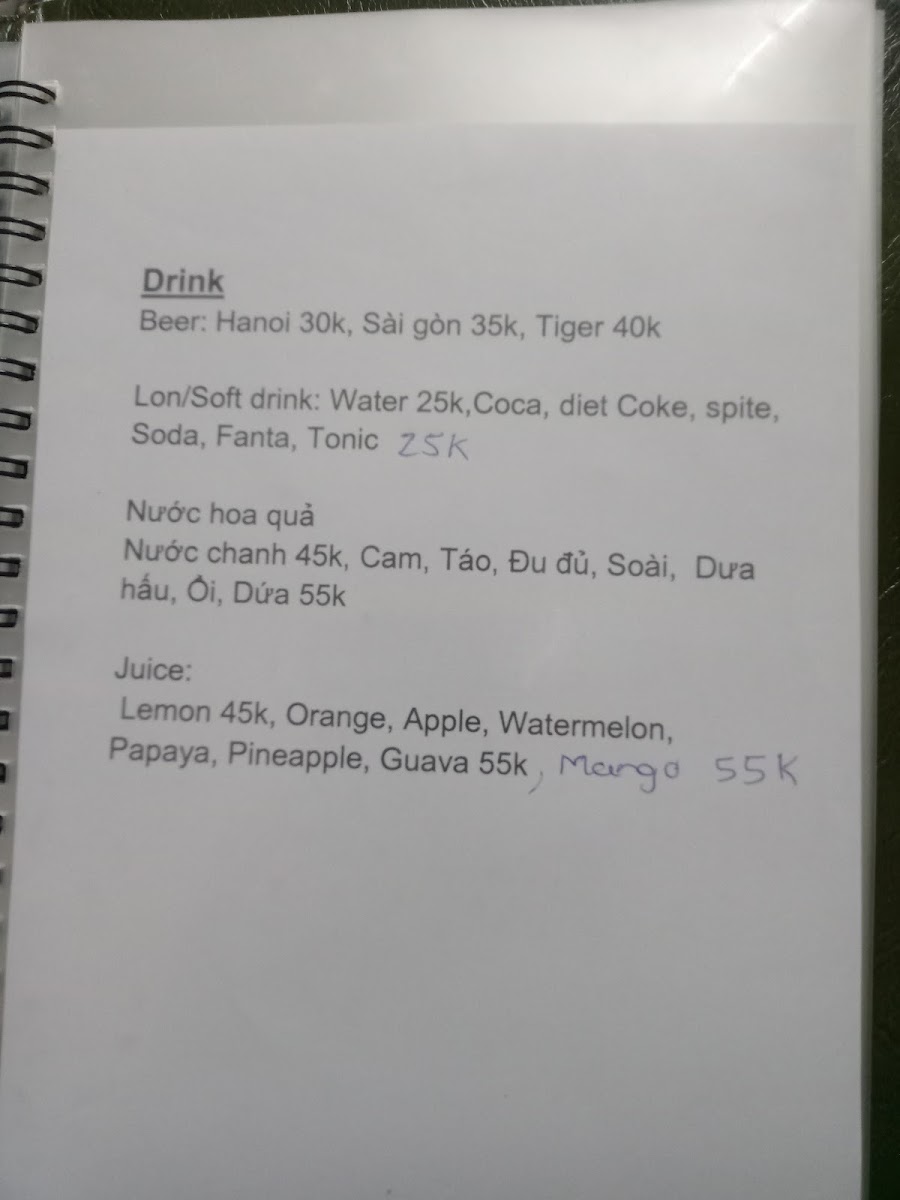 Drink
Beer: Hanoi 30k, Sài gòn 35k, Tiger 40k
Lon/Soft drink: Water 25k,Coca, diet Coke, spite,
Soda, Fanta, Tonic 25K
Nước hoa quả
Nước chanh 45k, Cam, Táo, Đu đủ, Soài, Dưa
hấu, Ổi, Dứa 55k
Juice:
Lemon 45k, Orange, Apple, Watermelon,
Papaya, Pineapple, Guava 55k, Mango 55K